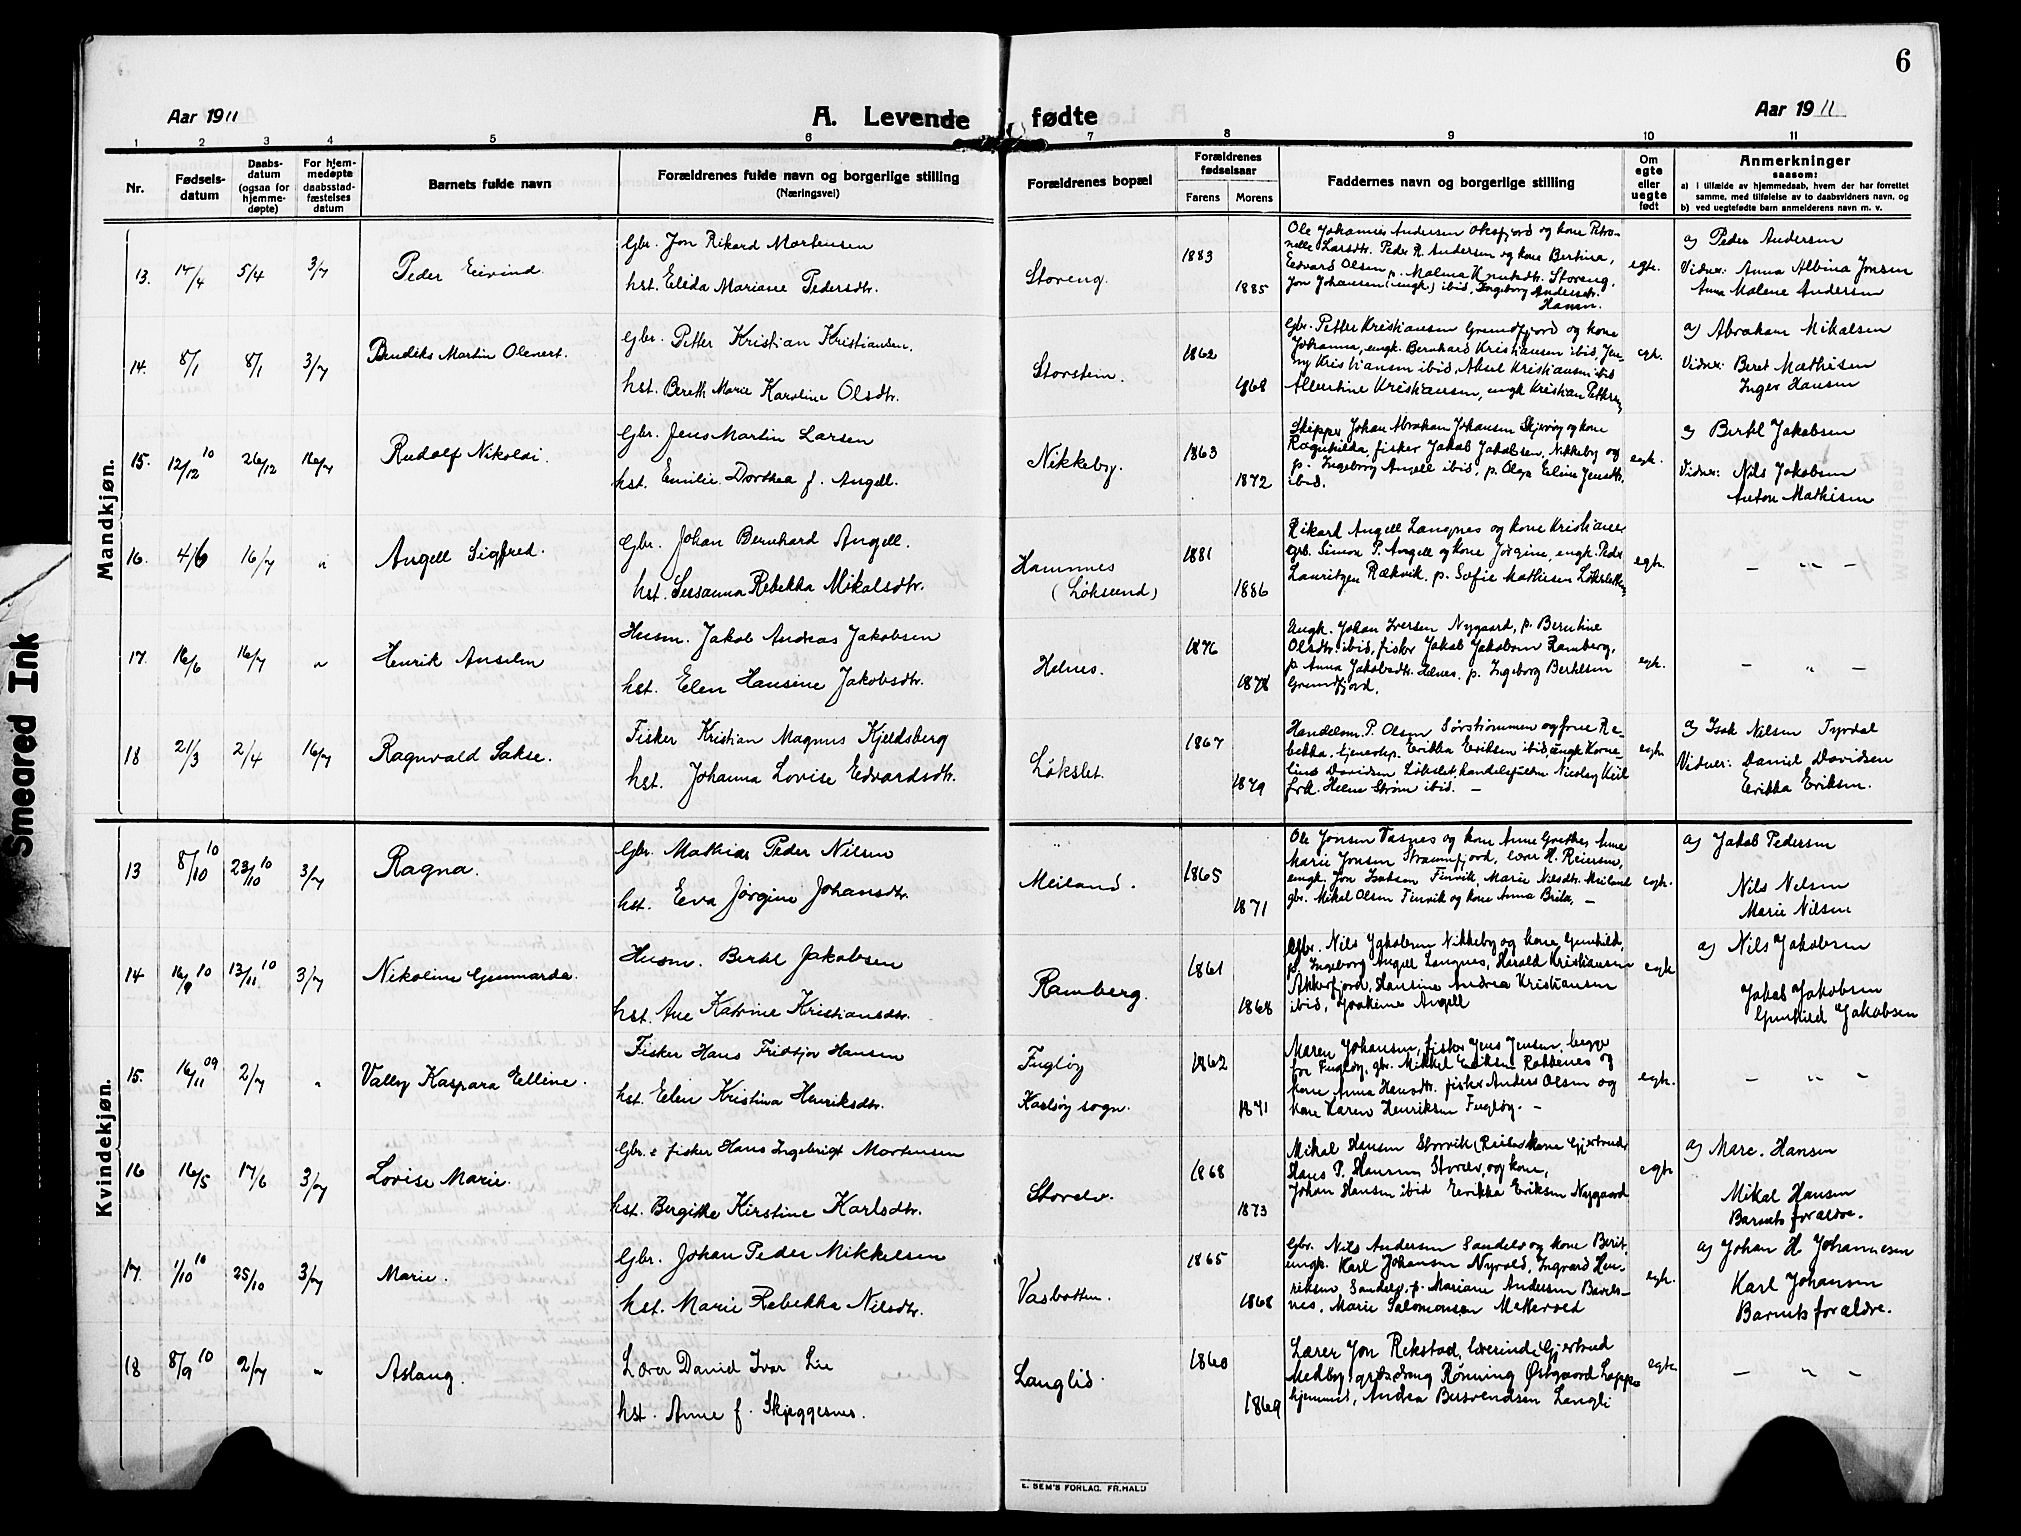 6
Aar 1911
A. Levende fødte
Aar 1911
1 2 3 4 5 6 7 8 9 10 11
Nr.
Fødsels-datum
Daabs-datum (ogsaa for hjemme-døpte)
For hjem-medøpte daabsstad-fæstelses datum
Barnets fulde navn
Forældrenes fulde navn og borgerlige stilling
(Næringsvei)
Forældrenes bopæl
Forældrenes fødselsaar
Farens Morens
Faddernes navn og borgerlige stilling
Om egte eller uegte født
Anmerkninger
saasom:
a) i tilfælde av hjemmedaab, hvem der har forrettet samme, med tilføielse av to daabsvidners navn, og
b) ved uegtefødte barn anmelderens navn m. v.
Mandkjøn.
13. 14/4 5/4 3/7 Peder Eivind
Gbr. Jon Rikard Mortensen
hst. Elida Mariane Pedersdtr.
Storeng.
1883
1885
Ole Johannes Andersen Oksfjord og kone Petro-
nelle Larsdtr. Peder R. Andersen og kone Bertina,
Edvard Olsen, p. Malena Knutsdtr. Storeng,
Jon Johansen (ungk.) ibid, Ingeborg Andersdtr.
Hansen.
egt.
a) Peder Andersen
Vidner: Anna Albina Jonsen
Anna Malene Andersen
14. 8/1 8/1 3/7 Bendiks Martin Olenert.
Gbr. Petter Kristian Kristiansen.
hst. Bereth Marie Karoline Olsdtr.
Storstein.
1862
1868
Gbr. Petter Kristiansen Grundfjord og kone
Johanna, ungk. Bernhard Kristiansen ibid, Jen-
ny Kristiansen ibid, Aksel Kristiansen ibid
Albertine Kristiansen, ungk Kristian Pettersen
egt.
a) Abraham Mikalsen
Vidner: Beret Mathisen
Inger Hansen
15. 12/12 10 26/12 16/7 Rudolf Nikolai.
Gbr. Jens Martin Larsen
hst. Emilie Dorthea f. Angell.
Nikkeby.
1863
1872
Skipper Johan Abraham Johansen Skjervøy og kone
Ragnhilda, fisker Jakob Jakobsen, Nikkeby og
p. Ingeborg Angell ibid, p. Olga Eline Jensdtr.
ibid.
egt.
a) Bertel Jakobsen
Vidner: Nils Jakobsen
Anton Mathisen
16. 4/6 16/7 " Angell Sigfred.
Gbr. Johan Bernhard Angell.
hst. Susanna Rebekka Mikalsdtr.
Hamnnes
(Løksund)
1881
1886
Rikard Angell Langnes og kone Kristiane
gbr. Simon P. Angell og kone Jørgine, ungk. Peder
Lauritzen Rækvik, p. Sofie Mathisen
egt.
— " —
17. 16/6 16/7 " Henrik Anselm
Husm. Jakob Andreas Jakobsen
hst. Elen Hansine Jakobsdtr.
Helnes.
1876
1878
Ungk. Johan Iversen Nygaard, p. Berntine
Olsdtr. ibid, fisker Jakob Jakobsen Ramberg,
p. Anna Jakobsdtr. Helnes, p. Ingeborg Bertelsen
Grundfjord.
egt.
— " —
18 21/3 2/4 16/7 Ragnvald Sakse.
Fisker Kristian Magnus Kjeldsberg
hst. Johanna Lovise Edvardsdtr.
Løkslet.
1867
1879
Handelsm. P. Olsen Sørstrømmen og frue Re-
bekka, tjenestep. Erikka Eriksen ibid, ungk. Korne-
lius Davidsen, Løkslet, handelsfuldm. Nicolay Keil
frk. Helene Strøm ibid. —
egt.
a) Isak Nilsen Tyrdal
Vidner: Daniel Davidsen
Erikka Eriksen.
Kvindekjøn.
13 8/10 10 23/10 10 3/7 Ragna.
Gbr. Mathias Peder Nilsen
hst. Eva Jørgine Johansdtr.
Meiland.
1865
1871
Ole Jonsen Vasnes og kone Anne Grethe, Anne
Marie Jonsen Straumfjord, lærer H. Reiersen,
ungk. Jon Isaksen Finvik, Marie Nilsdtr. Meiland
gbr. Mikal Olsen Finvik og kone Anna Brita, —
egt.
a) Jakob Pedersen
Nils Nilsen
Marie Nilsen
14 16/9 10 13/11 10 3/7 Nikoline Gunnarda.
Husm. Bertel Jakobsen
hst. Ane Katrine Kristiansdtr.
Ramberg.
1861
1868
Gbr. Nils Jakobsen Nikkeby og kone Gunhild,
p. Ingeborg Angell Langnes, Harald Kristiansen
Akkerfjord, Hansine Andrea Kristiansen
ibid, Joakime Angell
egt.
a) Nils Jakobsen
Jakob Jakobsen
Gunhild Jakobsen
15. 16/11 09 2/7 " Valby Kaspara Elline.
Fisker Hans Fridtjor Hansen
hst. Elen Kristina Henriksdtr.
Fugløy
Karlsøy sogn.
1862
1871
Maren Johansen, fisker Jens Jensen, begge
for Fugløy, gbr. Mikkel Eriksen Rakkenes og
kone Anna Hansdtr. fisker Anders Olsen og
kone Karen Henriksen Fugløy. —
egt.
— " —
16 16/5 17/6 3/7 Lovise Marie.
Gbr. & fisker Hans Ingebrigt Mortensen
hst. Bergitte Kirstine Karlsdtr.
Storelv.
1868
1873
Mikal Hansen Storvik (Reisa) kone Gjertrud
Hans P. Hansen, Storelv, og kone,
Johan Hansen ibid Erikka Eriksen Nygaard
egt.
a) Marc. Hansen
Mikal Hansen
Barnets forældre.
17. 1/10 10 25/10 3/7 Marie.
Gbr. Johan Peder Mikkelsen
hst. Marie Rebekka Nilsdtr.
Vasbotten.
1865
1868
Gbr. Nils Andersen Sandelv og kone Berit,
ungk. Karl Johansen Nyvold, Ingvard Hen-
riksen, Sandelv, p. Mariane Andersen Bavels-
nes, Marie Salomonsen Mettevold
egt.
a) Johan H. Johannesen
Karl Johansen
Barnets forældre.
18 8/9 10 2/7 " Aslaug.
Lærer David Ivar Lie
hst. Anne f. Skjeggesnes.
Langlid.
1860
1869
Lærer Jon Rekstad, lærerinde Gjertrud
Medby, Rønning Østgaard
hjemmed, Andrea Langli
egte.
— " —
E. SEM'S FORLAG. FR.HALD
Smeared Ink